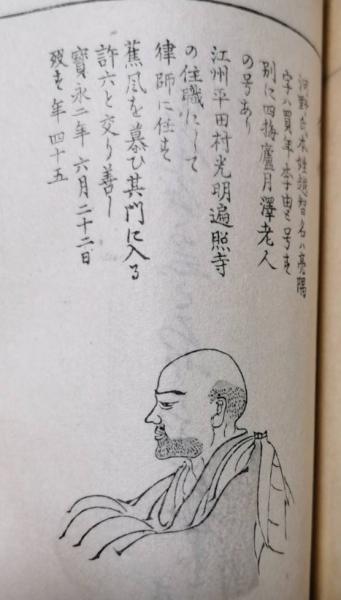 河野氏本姓越智名ハ亮隅
字ハ買年李由と号す
別に四梅廬月澤老人
の号あり
江州平田村光明遍照寺
の住職にして
律師に任す
蕉風を慕ひ其門に入る
許六と交り善し
寳永二年六月二十二日
歿す年四十五